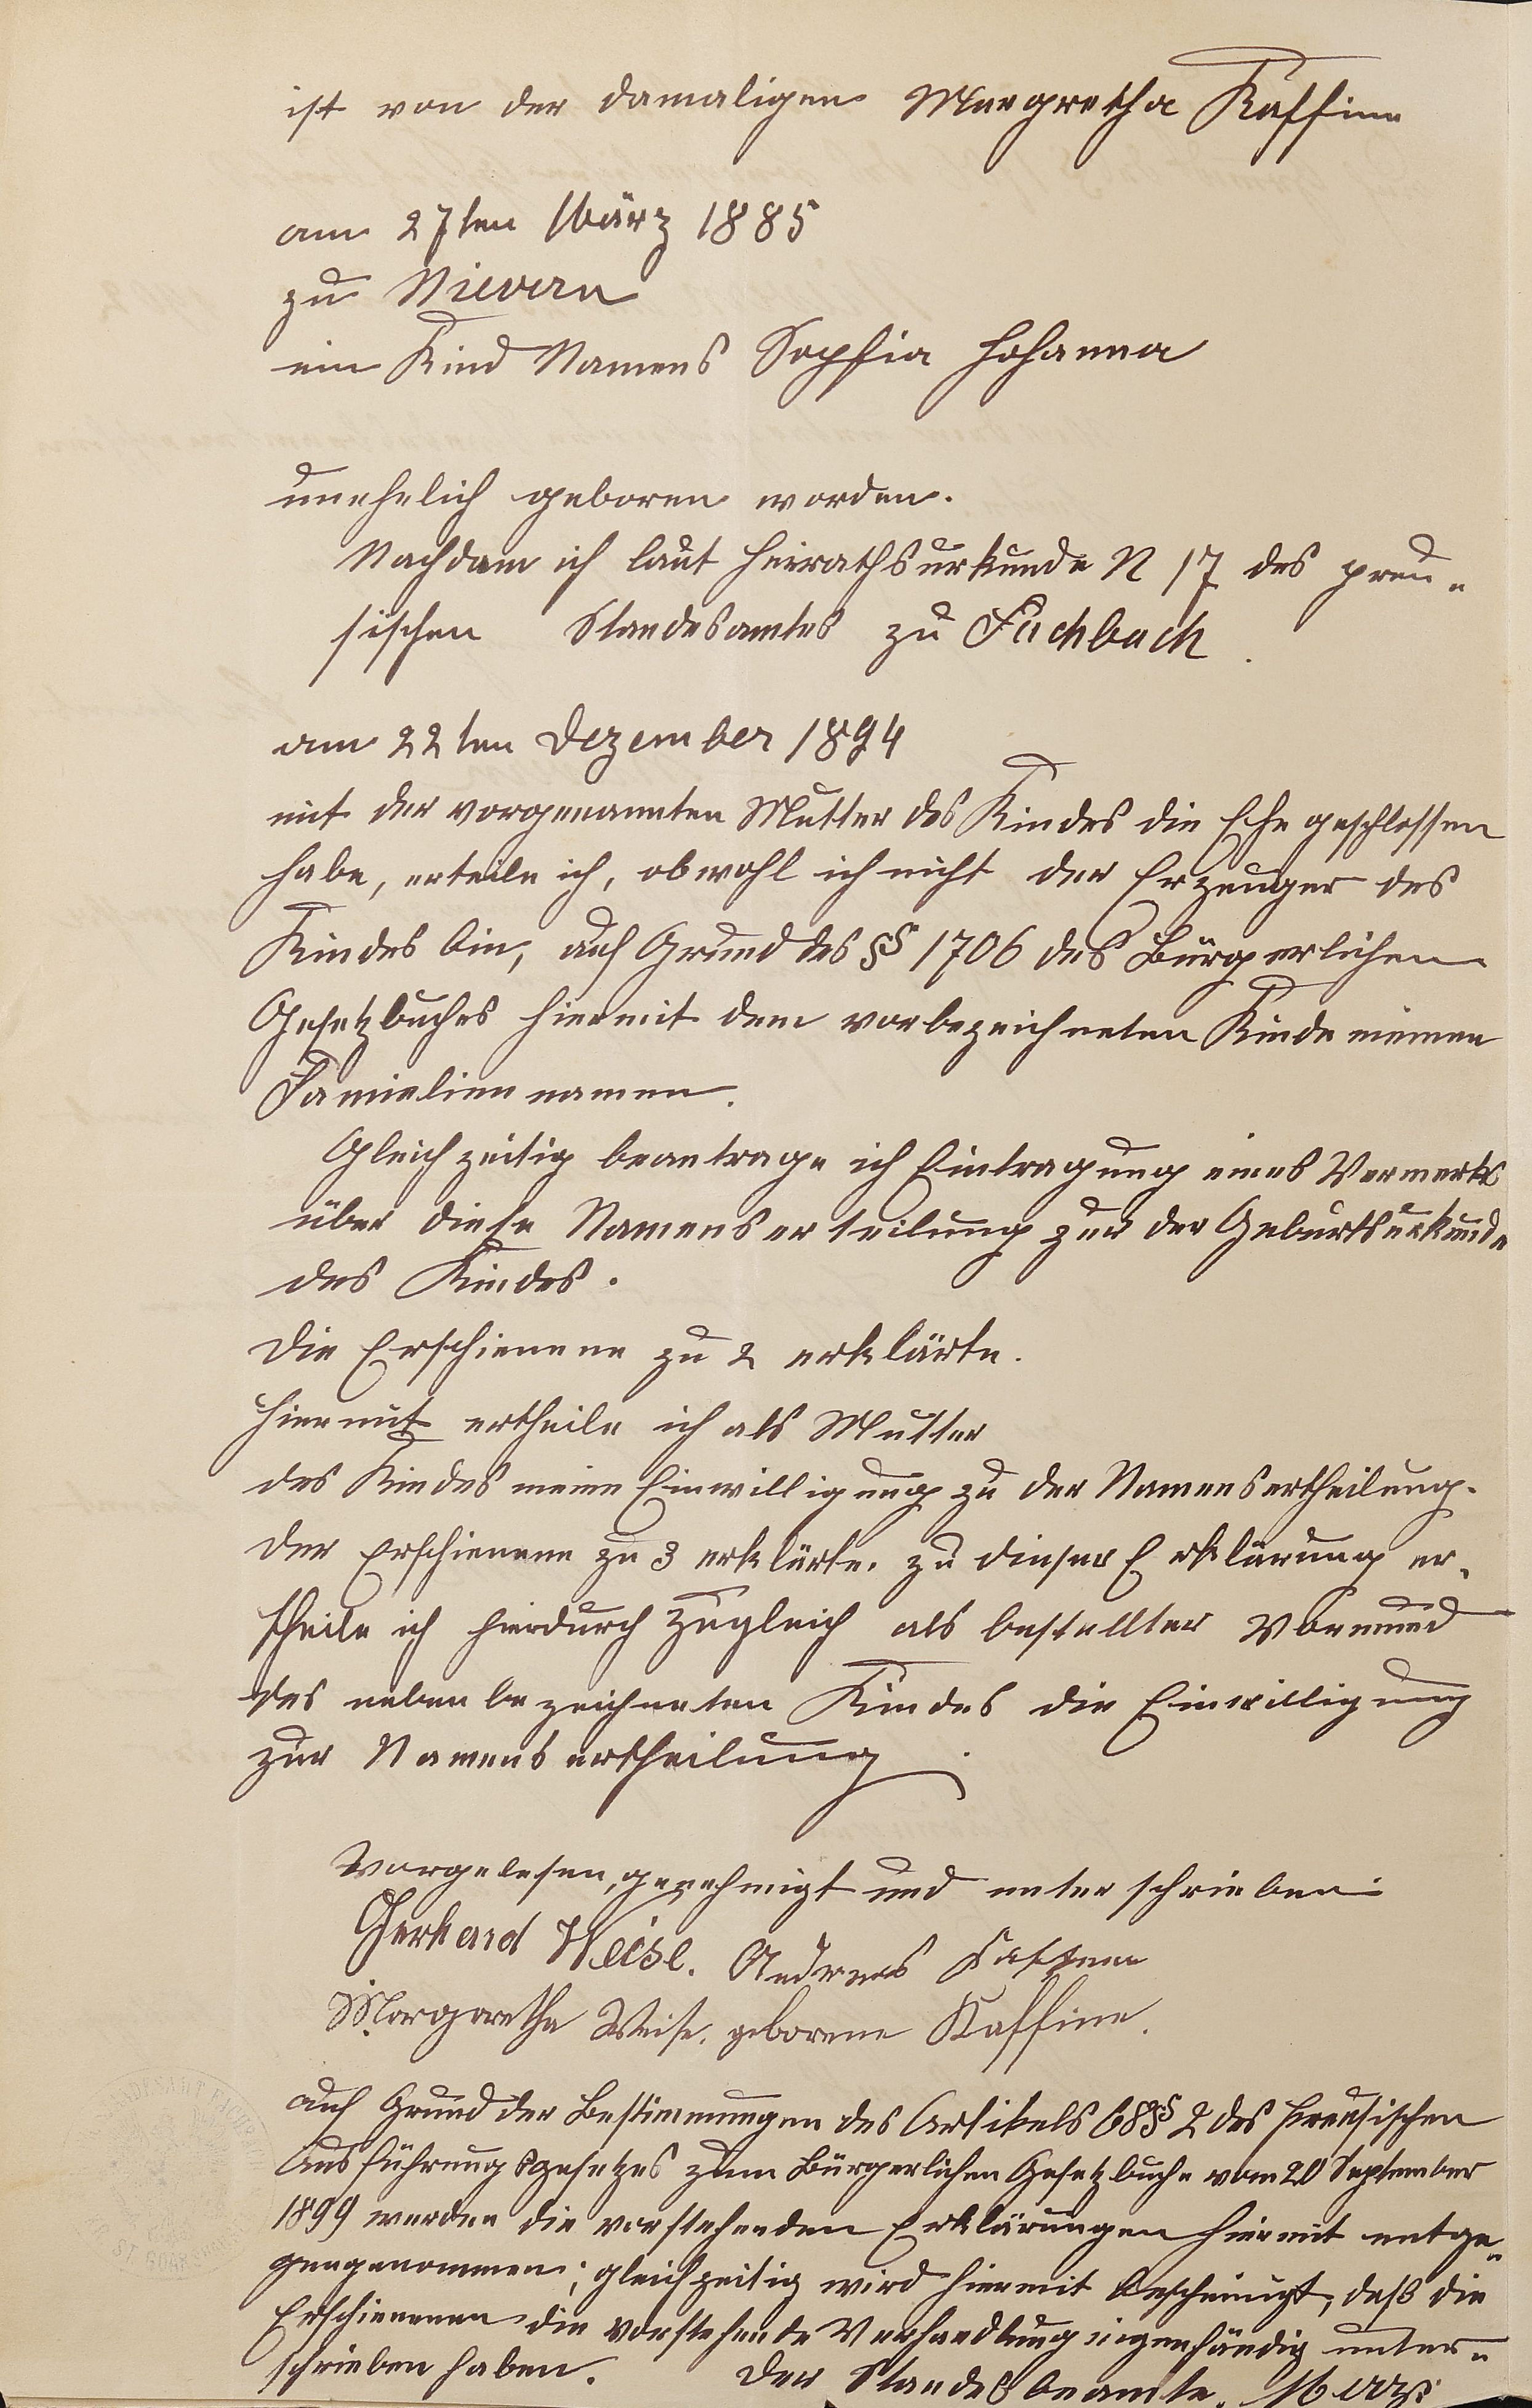 ist von der damaligen Margretha Kaffine
am 27ten März 1885
zu Nievern
ein Kind Namens Sophia Johanna
unehelich geboren worden.
Nachdem ich laut Heirathsurkunde N 17 des preu-
sischen Standesamtes zu Fachbach
am 22ten Dezember 1894
mit der vorgenannten Mutter des Kindes die Ehe geschlossen
habe, erteile ich, obwohl ich nicht der Erzeuger des
Kindes bin, auf Grund des §§ 1706 des Bürgerlichen
Gesetzbuches hiermit dem vorbezeichneten Kinde meinen
Familiennamen.
Gleichzeitig beantrage ich Eintragung eines Vermerks
über diese Namenserteilung zur der Geburtsurkunde
des Kindes.
Die Erschienene zu 2 erklärte.
Hiermit ertheile ich als Mutter
des Kindes meine Einwilligung zu der Namensertheilung.
Der Erschienene zu 3 erklärte. zu dieser Erklärung er-
theile ich hierdurch zugleich als bestellter Vormund
des nebenbezeichneten Kindes die Einwilligung
zur Namensertheilung.
Vorgelesen, genehmigt und unterschrieben
Gerhard Weise. Andreas
Margaretha Weise. geborene Kaffine.
Auf Grund der Bestimmungen des Artikels 68 § 2 des Preusischen
Ausführungsgesetzes zum Bürgerlichen Gesetzbuche vom 20 September
1899 werden die vorstehenden Erklärungen hiermit entge-
gengenommen; gleichzeitig wird hiermit bescheinigt, daß die
Erschienenen die vorstehende Verhandlung eigenhändig unter-
schrieben haben. Der Standesbeamte.